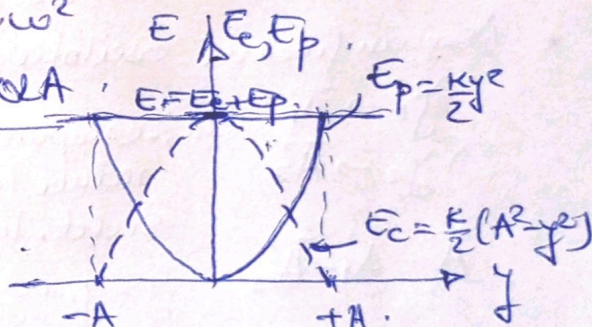 ω²
E E_c, E_p
A
E=E_c+E_p
E_p = k/2 y²
E_c = k/2 (A²-y²)
-A +A y